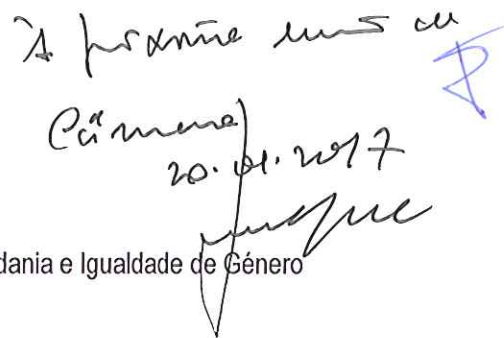 À próxima reunião de
Câmara
20.01.2017
dania e Igualdade de Género